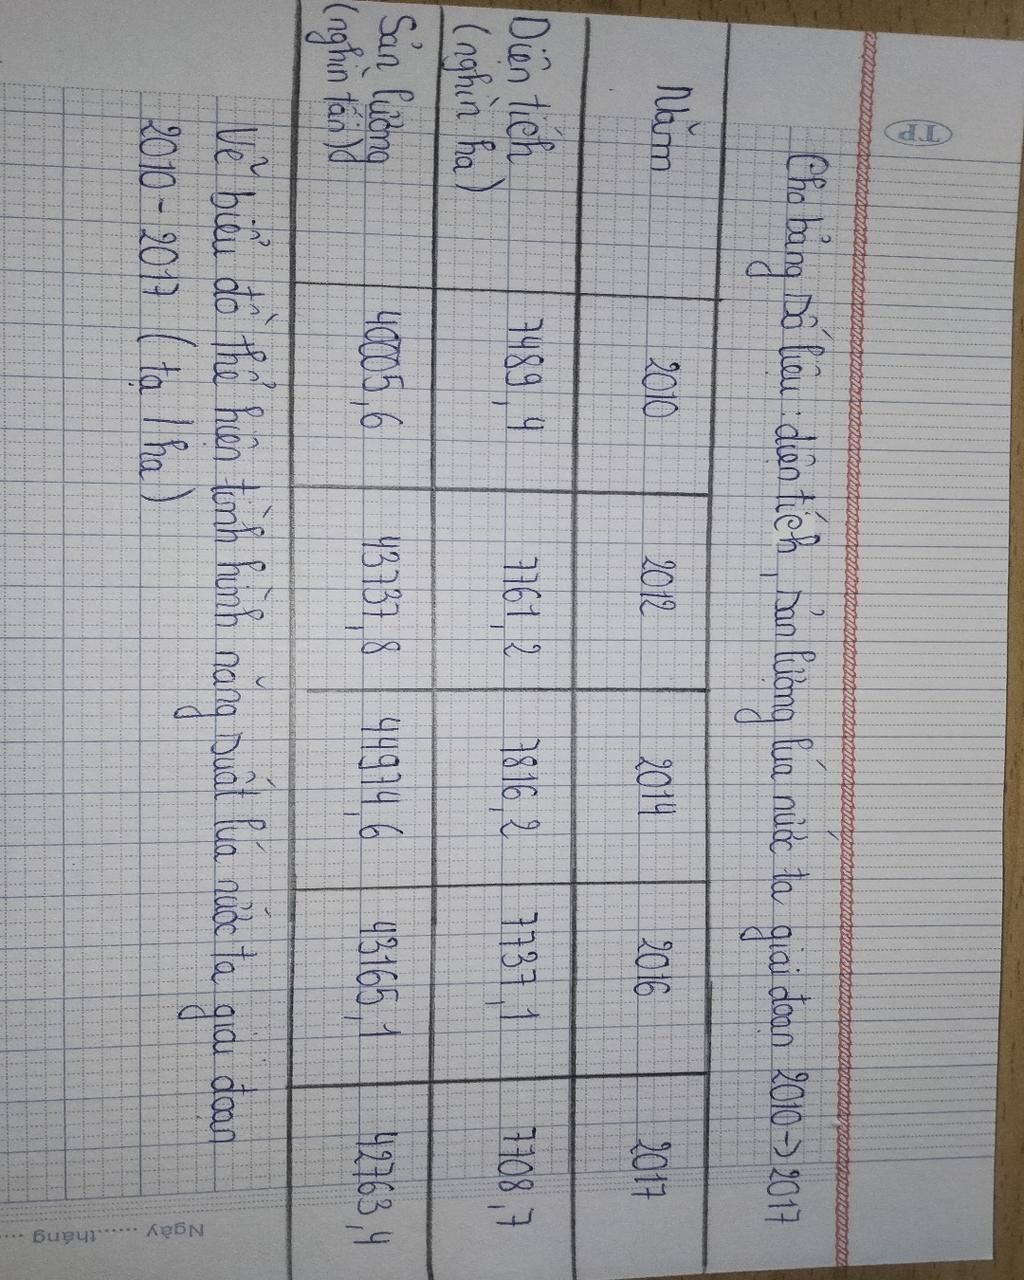 TP
Cho bảng số liệu: diện tích, sản lượng lúa nước ta giai đoạn 2010 → 2017
Năm 2010 2012 2014 2016 2017
Diện tích (nghìn ha) 7489,4 7761,2 7816,2 7737,1 7708,7
Sản lượng (nghìn tấn) 40005,6 43737,8 44974,6 43165,1 42763,4
Vẽ biểu đồ thể hiện tình hình năng suất lúa nước ta giai đoạn
2010 - 2017 (tạ/ha)
Ngày ........tháng ....